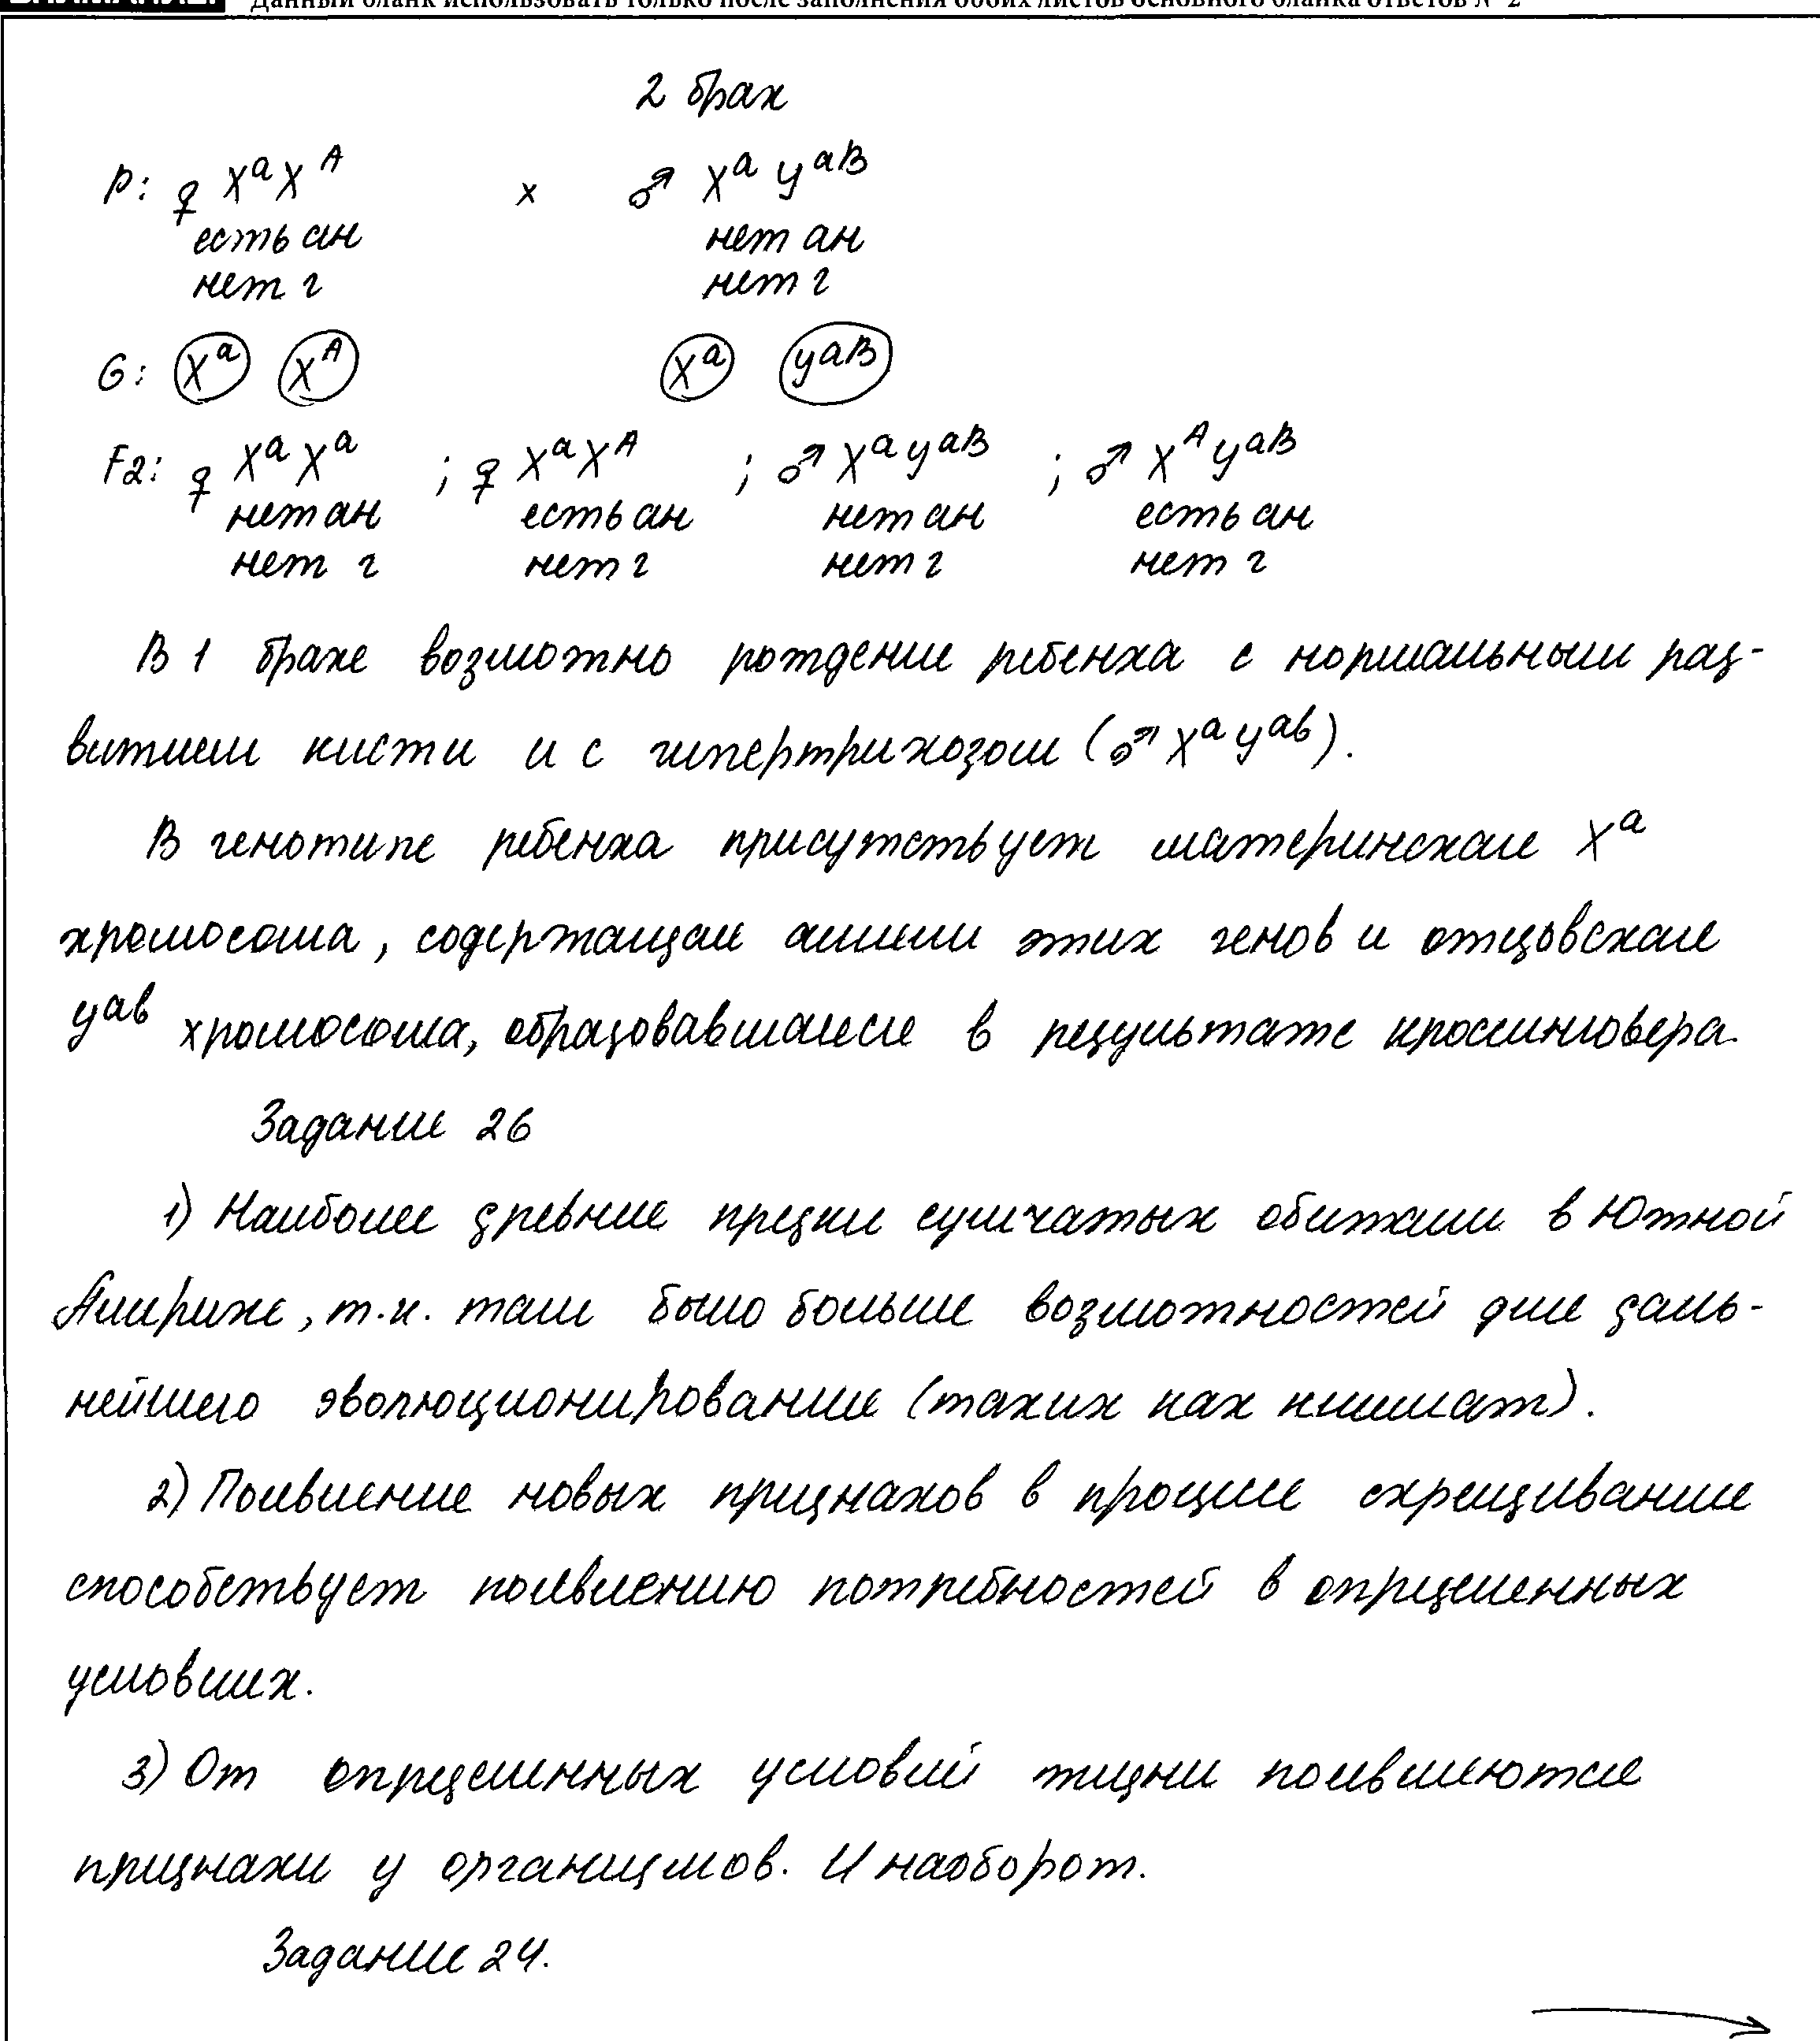 Данный бланк использовать только после заполнения обоих листов основного бланка ответов № 2
2 брак
P: ♀ XᵃXᴬ x ♂ Xᵃ yᵃᴮ
есть ан нет ан
нет г нет г
G: Xᵃ Xᴬ Xᵃ yᵃᴮ
F2: ♀ XᵃXᵃ ; ♀ XᵃXᴬ ; ♂ Xᵃyᵃᴮ ; ♂ Xᴬyᵃᴮ
нет ан есть ан нет ан есть ан
нет г нет г нет г нет г
В 1 браке возможно рождение ребенка с нормальным раз-
витием кисти и с гипертрихозом (♂ Xᵃyᵃᵇ).
В генотипе ребенка присутствует материнская Xᵃ
хромосома, содержащая аллели этих генов и отцовская
yᵃᵇ хромосома, образовавшаяся в результате кроссинговера.
Задание 26
1) Наиболее древние предки сумчатых обитали в Южной
Америке, т.к. там было больше возможностей для даль-
нейшего эволюционирования (таких как климат).
2) Появление новых признаков в процессе скрещивания
способствует появлению потребностей в определенных
условиях.
3) От определенных условий жизни появляются
признаки у организмов. И наоборот.
Задание 24.